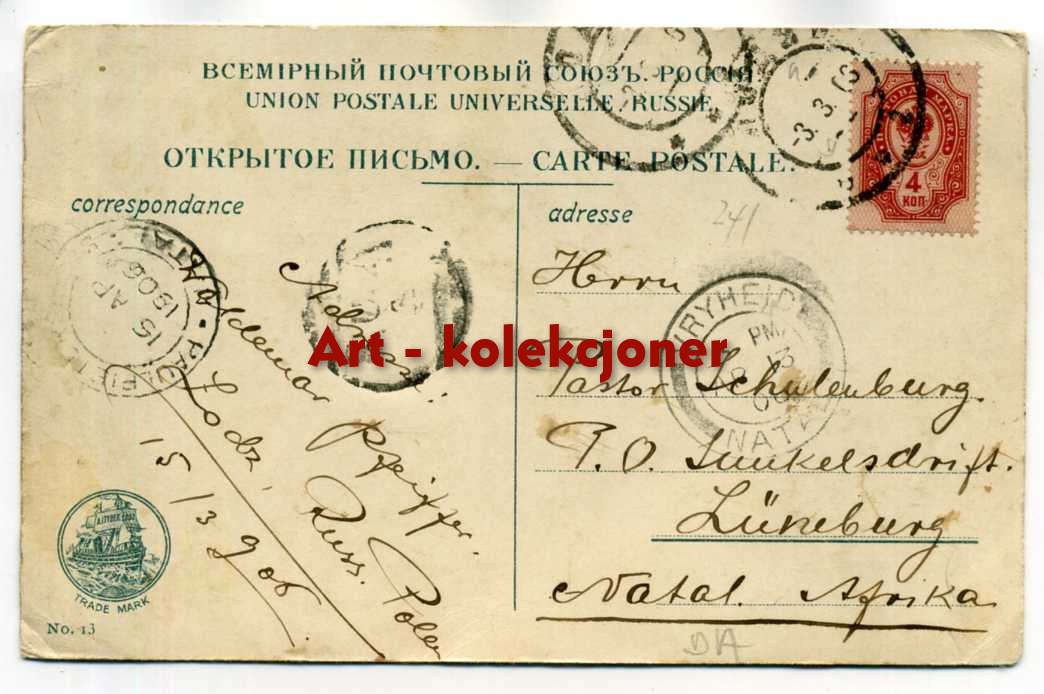 ВСЕМІРНЫЙ ПОЧТОВЫЙ СОЮЗЪ. РОССІЯ
UNION POSTALE UNIVERSELLE. RUSSIE.
ОТКРЫТОЕ ПИСЬМО. — CARTE POSTALE.
correspondance
adresse
241
ПОЧТОВАЯ МАРКА
4
КОП
3.3.
15 AP
1906
VRYHEID
PM
NATAL
Herrn
Pastor Schulenburg
P.O. Lunkelsdrift.
Lüneburg
Natal. Afrika
Adresse:
Woldemar Pfeiffer.
Lodz, Russ. Polen
15/3 906.
Art - kolekcjoner
TRADE MARK
No. 13